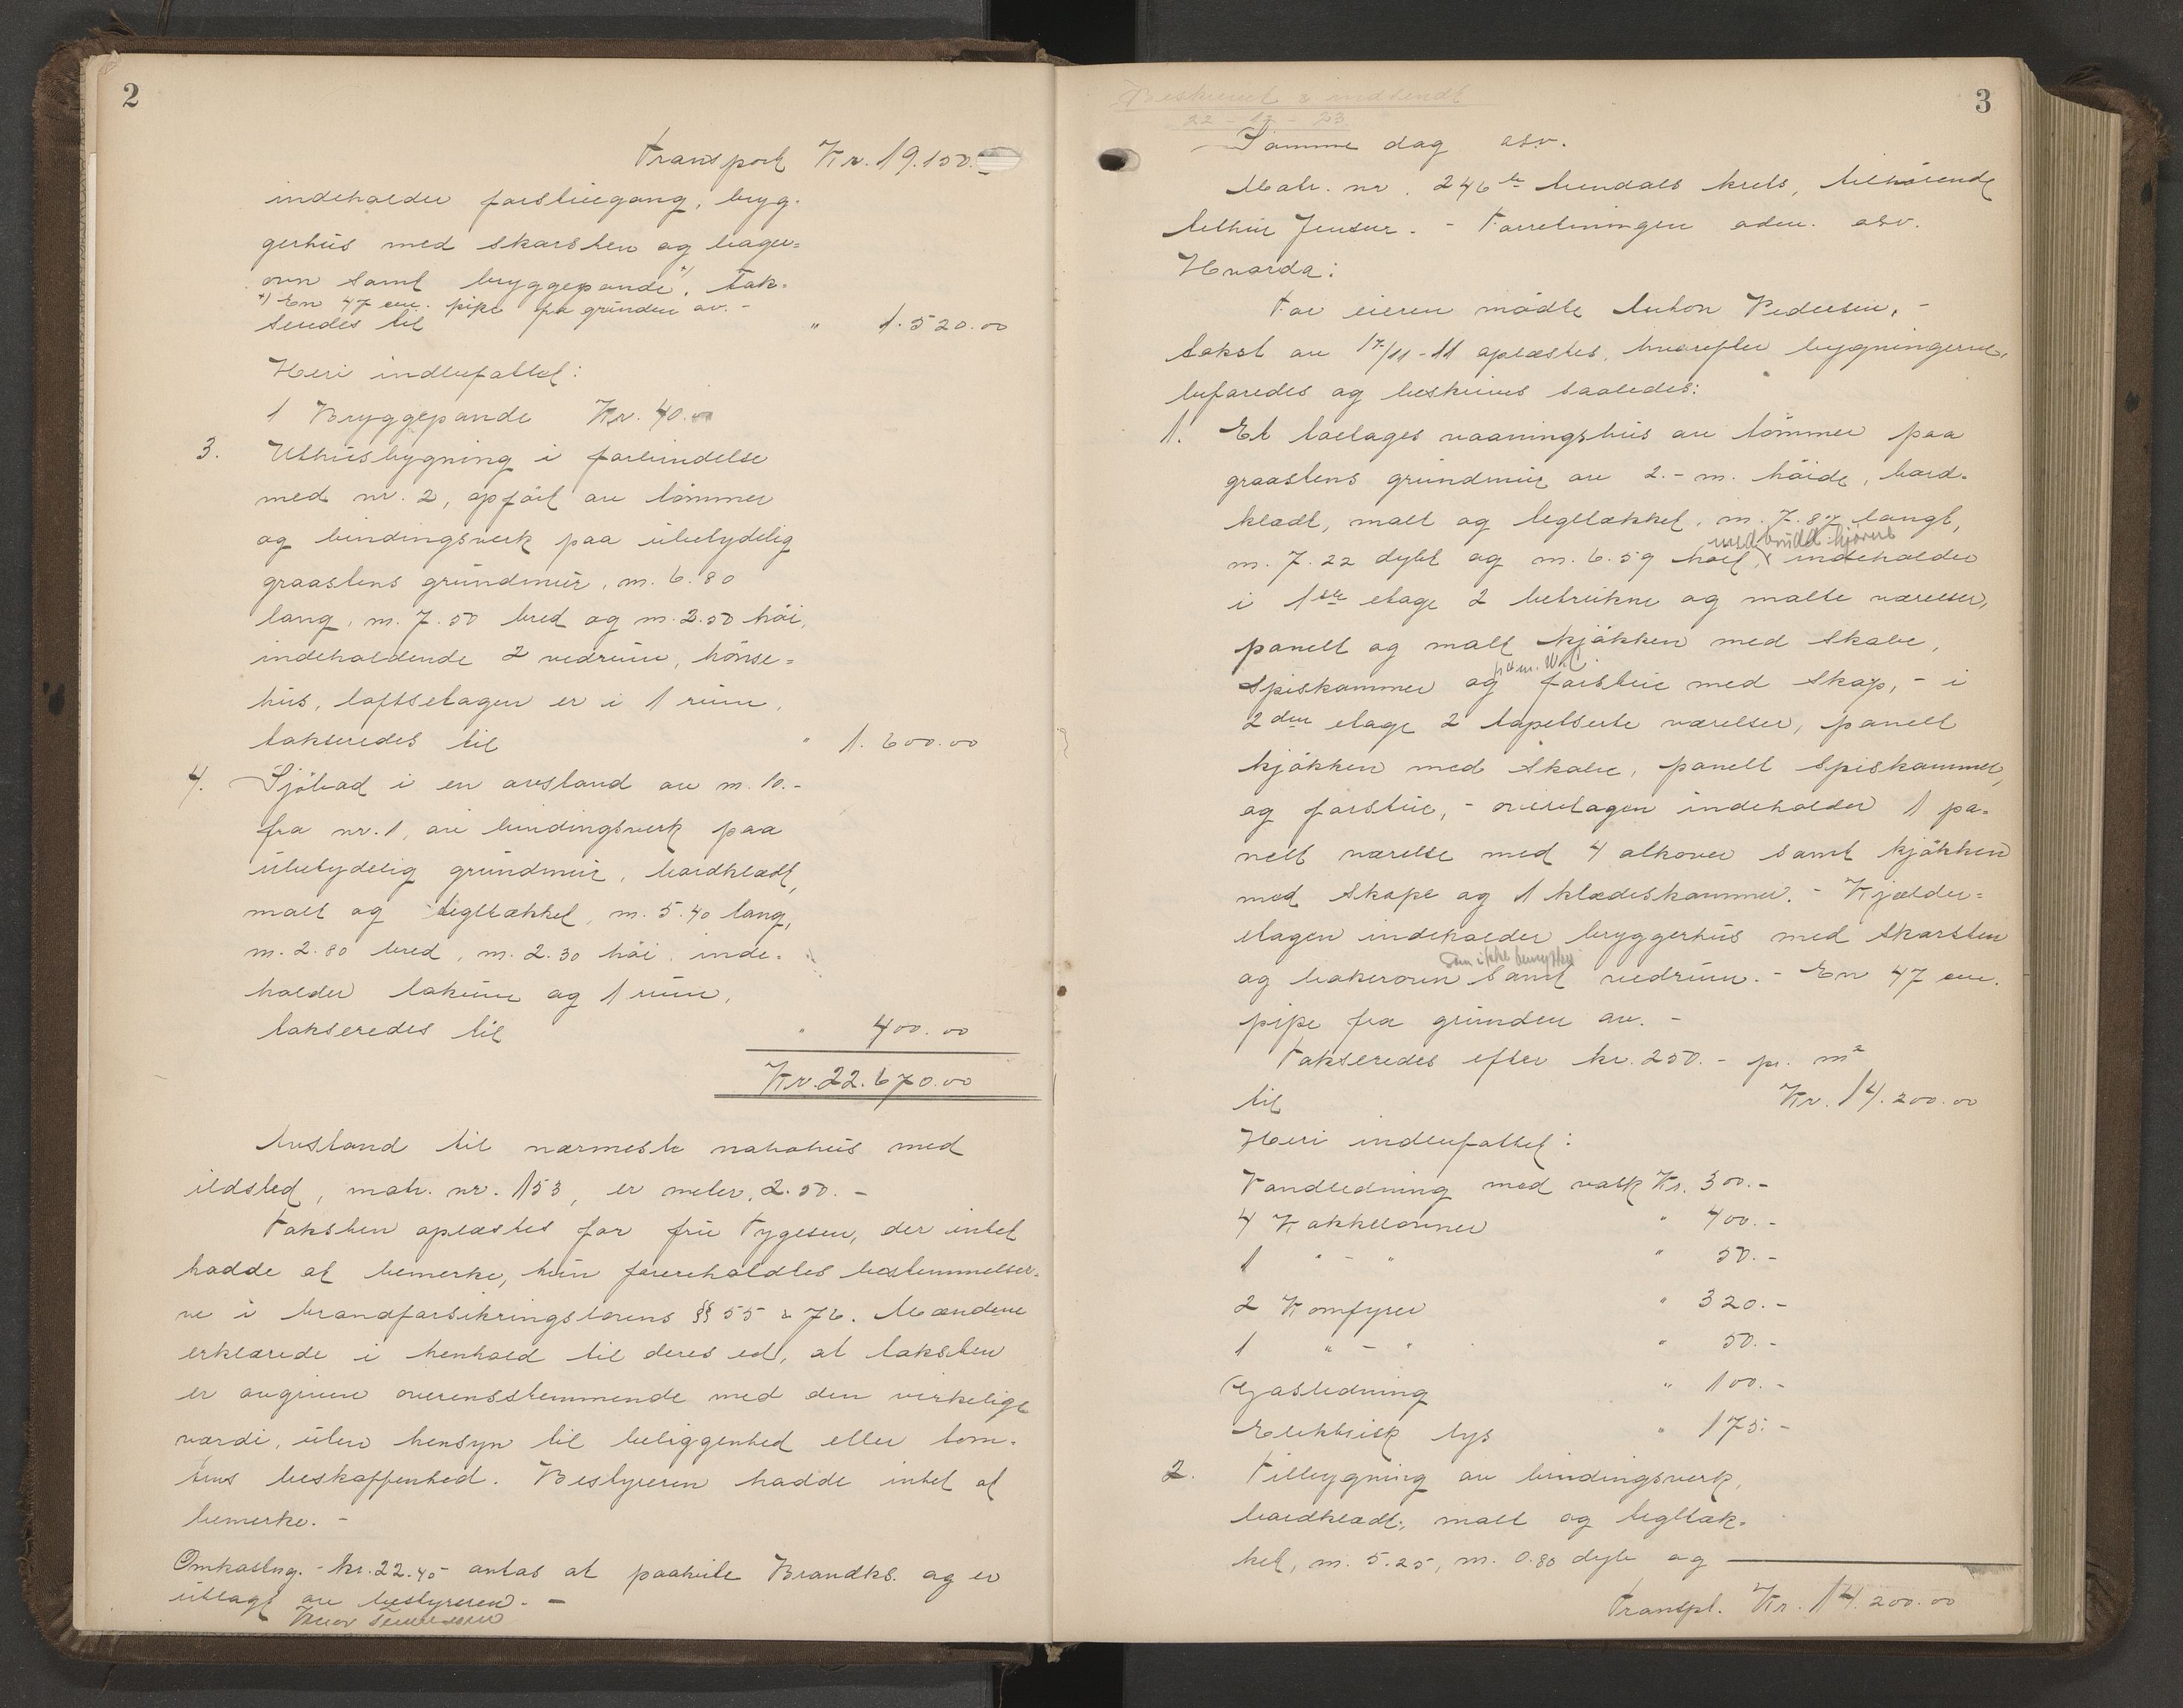 2
Transport Kr. 19.150.-
indeholder forstuegang, bryg-
gerhus med skorsten og bager=
ovn samt bryggepande, x) tak-
x) En 47 cm. pipe fra grunden av. -
seredes til " 1.520.00
Heri indbefattet:
1 Bryggepande Kr. 40.00
3. Uthusbygning i forbindelse
med nr. 2, opført av tømmer
og bindingsverk paa ubetydelig
graastens grundmur, m. 6.80
lang, m. 7.50 bred og m. 3.50 høi,
indeholdende 2 vedrum, hønse=
hus, loftsetagen er i 1 rum,
takseredes til " 1.600.00
4. Sjøbad i en avstand av m. 10.-
fra nr. 1, av bindingsverk paa
ubetydelig grundmur, bordklædt,
malt og tegltækket, m. 5.40 lang,
m. 2.80 bred, m. 2.30 høi, inde-
holder bakrum og 1 rum,
takseredes til " 400.00
Kr. 22.670.00
Avstand til nærmeste nabohus med
ildsted, matr. nr. 153, er meter 2.50. -
Taksten oplæstes for fru Tygesen, der intet
hadde at bemerke, hun foreholdtes bestemmelser-
ne i brandforsikringslovens §§ 55 & 76. Mændene
erklærede i henhold til deres ed, at taksten
er avgiven overensstemmende med den virkelige
værdi, uten hensyn til beliggenhed eller tom-
tens beskaffenhed. Bestyreren hadde intet at
bemerke. -
Omkostng. - kr. 22.40 antas at paahvile Brandks. og er
utlagt av bestyreren. -
3
Beskrevet & indsendt
22 - 12 - 23
Samme dag osv.
Matr. nr. 246 b Arendals krets, tilhørende
Forretningen adm. osv.
Hvorda:
For eieren mødte Anton Pedersen, -
takst av 17/11-11 oplæstes, hvorefter bygningerne
befaredes og beskrives saaledes:
1. Et toetages vaaningshus av tømmer paa
graastens grundmur av 2.- m. høide, bord-
klædt, malt og tegltækket, m. 7.87 langt,
m. 7.22 dybt og m. 6.59 høit, indeholder
i 1ste etage 2 betrukne og malte værelser,
panelt og malt kjøkken med skabe,
spiskammer og forstue med skap, - i
2den etage 2 tapetserte værelser, panelt
kjøkken med skabe, panelt spiskammer,
og forstue, - øversetagen indeholder 1 pa-
nelt værelse med 4 alkover samt kjøkken
med skape og 1 klædeskammer. - Kjælder=
etagen indeholder bryggerhus med skorsten
som ikke benyttes
og bakerovn samt vedrum. - En 47 cm.
pipe fra grunden av. -
Takseredes efter kr. 250.- pr. m²
til Kr. 14.200.00
Heri indbefattet:
Vandledning med vask Kr. 300.-
4 Kakkelovner " 400.-
1 " - " " 50.-
2 Komfyrer " 320.-
1 " - " " 50.-
Gasledning " 100.-
Elektrisk lys " 175.-
2. Tilbygning av bindingsverk,
bordklædt, malt og tegltæk-
ket, m. 5.25, m. 0.80 dyb og
Transpt. Kr. 14.200.00